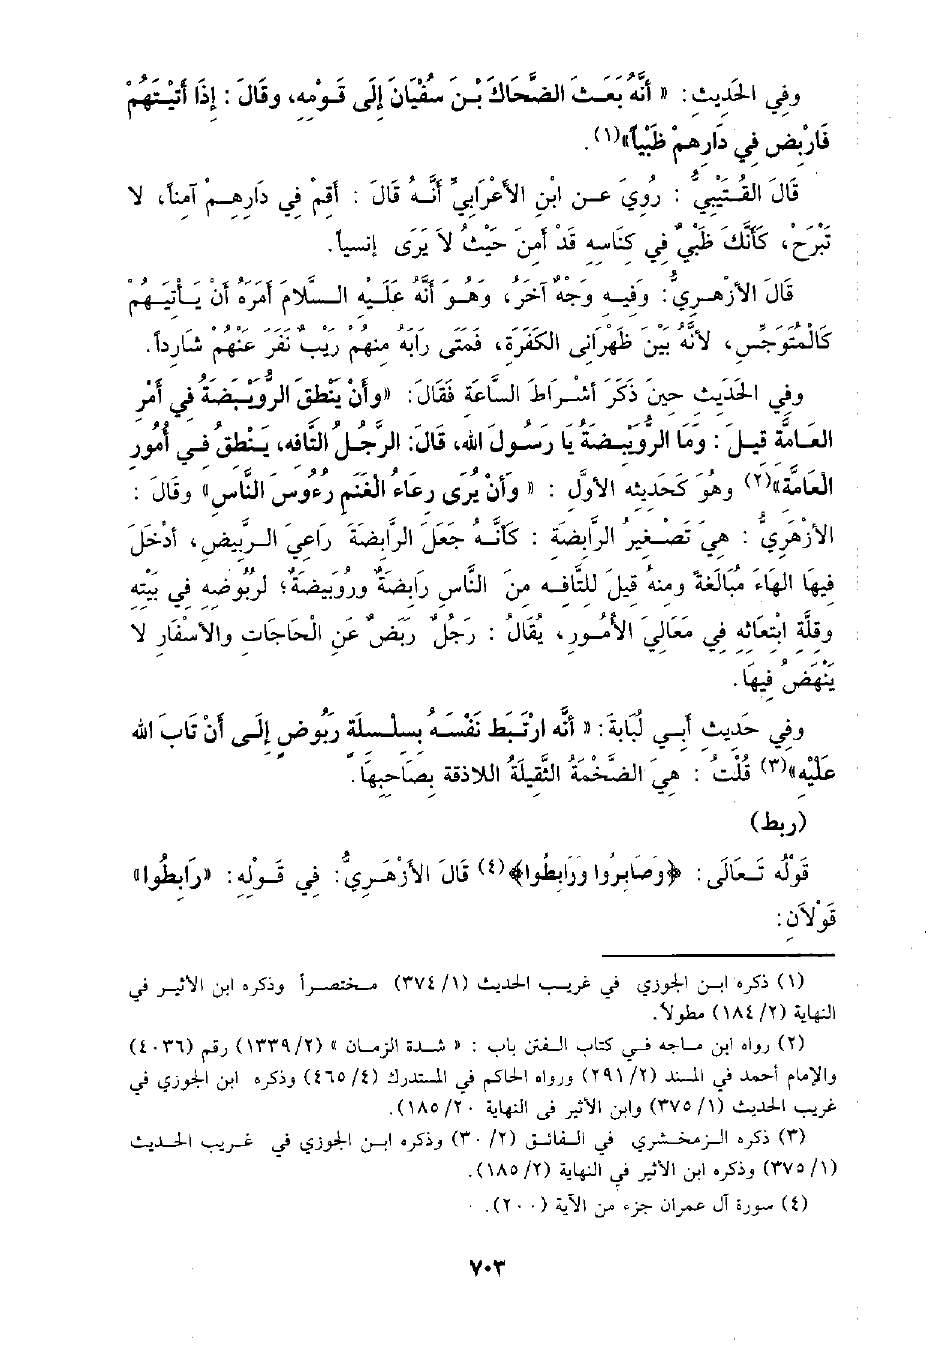 وفِي الحَدِيثِ: « أنَّهُ بَعَثَ الضَّحَاكَ بْنَ سُفْيَانَ إلَى قَوْمِهِ، وقَالَ : إذَا أتَيْتَهُمْ
فَارْبِضْ فِي دَارِهِمْ ظَبْياً»(١).
قَالَ القُتَيْبِيُّ : رُوِيَ عَنِ ابْنِ الأعْرَابِيِّ أنَّهُ قَالَ : أقِمْ فِي دَارِهِمْ آمِناً، لا
تَبْرَحْ، كَأَنَّكَ ظَبْيٌ فِي كِنَاسِهِ قَدْ أمِنَ حَيْثُ لاَ يَرَى إنسِياً.
قَالَ الأزْهَرِيُّ: وَفِيهِ وَجْهٌ آخَرُ، وَهُوَ أنَّهُ عَلَيْهِ السَّلَامَ أمَرَهُ أنْ يَأتِيَهُمْ
كَالْمُتَوَجِّسِ، لأنَّهُ بَيْنَ ظَهْرَانَى الكَفَرَةِ، فَمَتَى رَابَهُ مِنهُمْ رَيْبٌ نَفَرَ عَنْهُمْ شَارِداً.
وفِي الحَدِيثِ حِينَ ذَكَرَ أشْرَاطَ السَّاعَةِ فَقَالَ: «وأنْ يَنْطِقَ الرُّوَيْبِضَةُ فِي أمْرِ
العَامَّةِ قِيلَ : وَمَا الرُّوَيْبِضَةُ يَا رَسُولَ اللهِ، قَالَ: الرَّجُلُ التَّافِهِ، يَنْطِقُ فِي أمُورِ
الْعَامَّةِ»(٢) وهُوَ كَحَدِيثِهِ الأوَّلِ : « وَأنْ يُرَى رِعَاءُ الْغَنَمِ رُءُوسَ النَّاسِ» وَقَالَ :
الأزْهَرِيُّ : هِيَ تَصْغِيرُ الرَّابِضَةِ : كَأنَّهُ جَعَلَ الرَّابِضَةَ رَاعِيَ الرَّبِيضِ، أدْخَلَ
فِيهَا الهَاءَ مُبَالَغَةً ومِنهُ قِيلَ لِلتَّافِهِ مِنَ النَّاسِ رَابِضَةٌ ورُوَيبِضَةٌ؛ لِرُبُوضِهِ فِي بَيْتِهِ
وقِلَّةِ ابْتِعَاثِهِ فِي مَعَالِيَ الأُمُورِ، يُقَالُ : رَجُلٌ رَبَضٌ عَنِ الْحَاجَاتِ والأسْفَارِ لا
يَنْهَضُ فِيهَا.
وفِي حَدِيثِ أبِي لُبَابَةَ: « أنَّهُ ارْتَبَطَ نَفْسَهُ بِسِلْسِلَةٍ رَبُوضٍ إلَى أنْ تَابَ اللهُ
عَلَيْهِ»(٣) قُلْتُ : هِيَ الضَّخْمَةُ الثَّقِيلَةُ اللاذقة بِصَاحِبِهَا.
(ربط)
قَوْلُهُ تَعَالَى: ﴿وَصَابِرُوا وَرَابِطُوا﴾(٤) قَالَ الأزْهَرِيُّ: فِي قَوْلِهِ: «رَابِطُوا»
قَوْلاَنِ:
(١) ذكره ابن الجوزي في غريب الحديث (١/ ٣٧٤) مختصراً وذكره ابن الأثير في
النهاية (٢/ ١٨٤) مطولاً.
(٢) رواه ابن ماجه في كتاب الفتن باب : « شدة الزمان » (٢/ ١٣٣٩) رقم (٤٠٣٦)
والإمام أحمد في المسند (٢/ ٢٩١) ورواه الحاكم في المستدرك (٤/ ٤٦٥) وذكره ابن الجوزي في
غريب الحديث (١/ ٣٧٥) وابن الأثير فى النهاية ٢٠/ ١٨٥).
(٣) ذكره الزمخشري في الفائق (٢/ ٣٠) وذكره ابن الجوزي في غريب الحديث
(١/ ٣٧٥) وذكره ابن الأثير في النهاية (٢/ ١٨٥).
(٤) سورة آل عمران جزء من الآية (٢٠٠).
٧٠٣